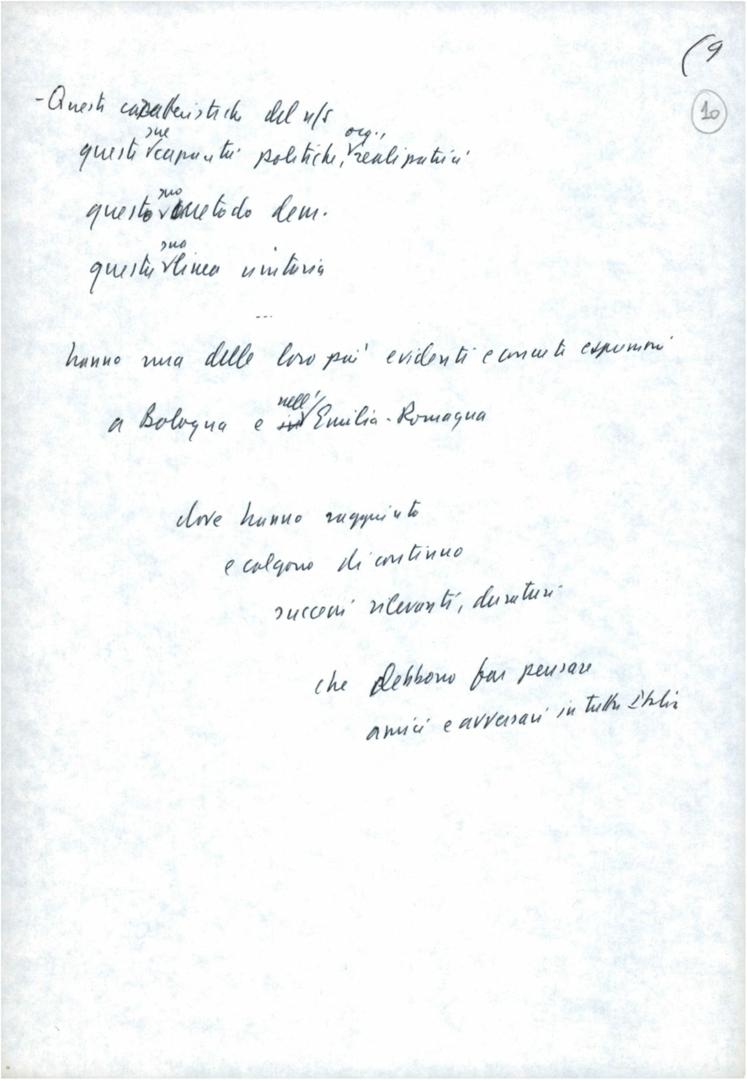 (9
10
- Queste caratteristiche del n/s
queste sue capacità politiche, org., realizzatrici
questo suo metodo dem.
questa sua linea unitaria
...
hanno una delle loro più evidenti e concrete espressioni
a Bologna e nell'Emilia-Romagna
dove hanno raggiunto
e colgono di continuo
successi rilevanti, duraturi
che debbono far pensare
amici e avversari in tutta Italia